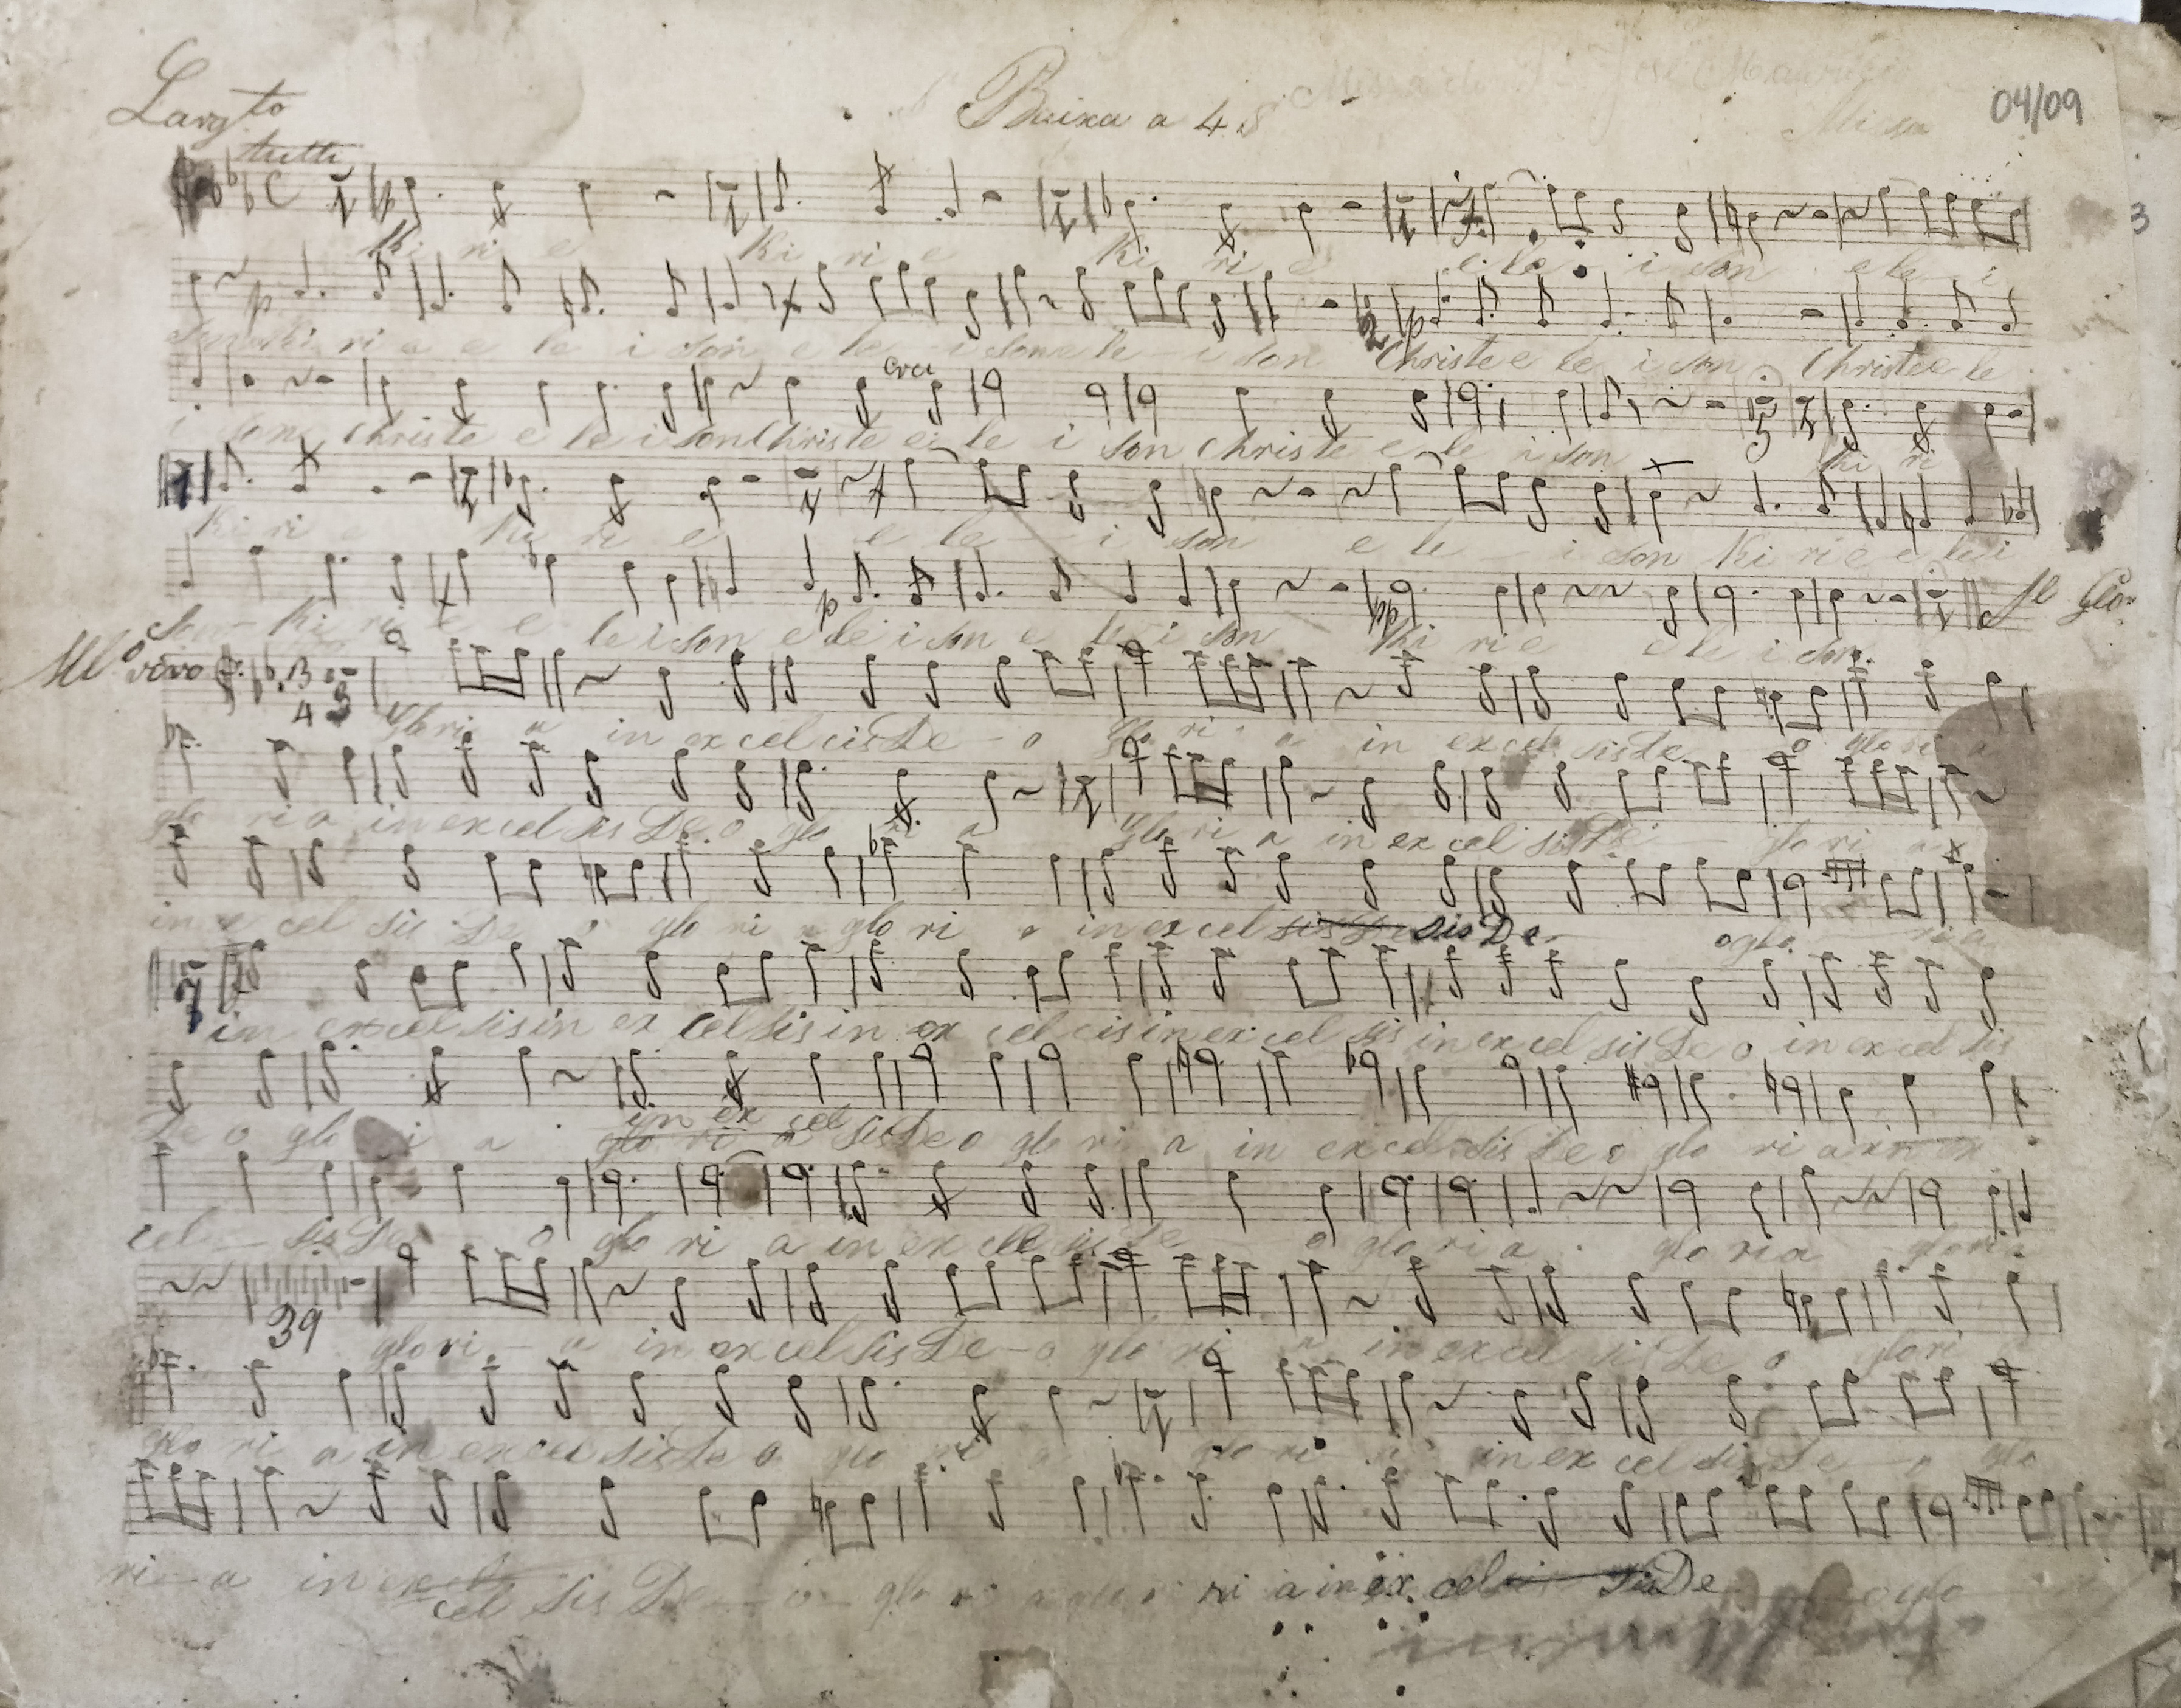 Missa do P. José Mauricio
Largto Baixa a 4 S Missa 04/09
tutti
3
Ki ri e Ki ri e Ki ri e e le i son e le i
son Ki ri e e le i son e le i son e le i son Christe e le i son Christe e le
cres
i son Christe e le i son Christe e le i son Christe e le i son Ki ri e
Ki ri e Ki ri e e le i son e le i son Ki ri e e le i
son Ki ri e e le i son e le i son e le i son Ki ri e e le i son
Glo
vivo
glo ri a in ex cel cis De o glo ri a in ex cel sis De o glo ri a
glo ri a in ex cel sis De o glo ri a glo ri a in ex cel sis De glo ri a
in ex cel sis De o glo ri a glo ri a in ex cel sis De sis De o glo ria
in ex cel sis in ex cel sis in ex cel cis in ex cel sis in ex cel sis De o in ex cel sis
in ex cel
De o glo ri a glo ri a sis De o glo ri a in ex cel sis De o glo ri a in ex
cel sis De o glo ri a in ex cel sis De o glo ri a glo ri a glo ri a
39
glo ri a in ex cel sis De o glo ri a in ex cel sis De o glo ri
glo ri a in ex cel sis De o glo ri a glo ri a in ex cel sis De o glo
ri a in ex cel sis De o glo ri a ri a in ex cel sis De o glo